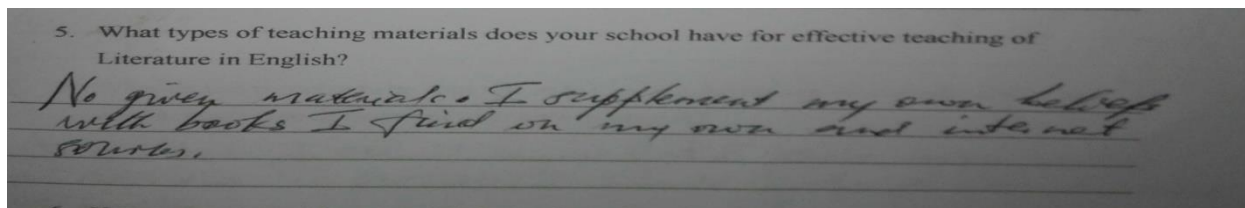 5. What types of teaching materials does your school have for effective teaching of
Literature in English?
No given materials. I supplement my own beliefs
with books I find on my own and internet
sources.